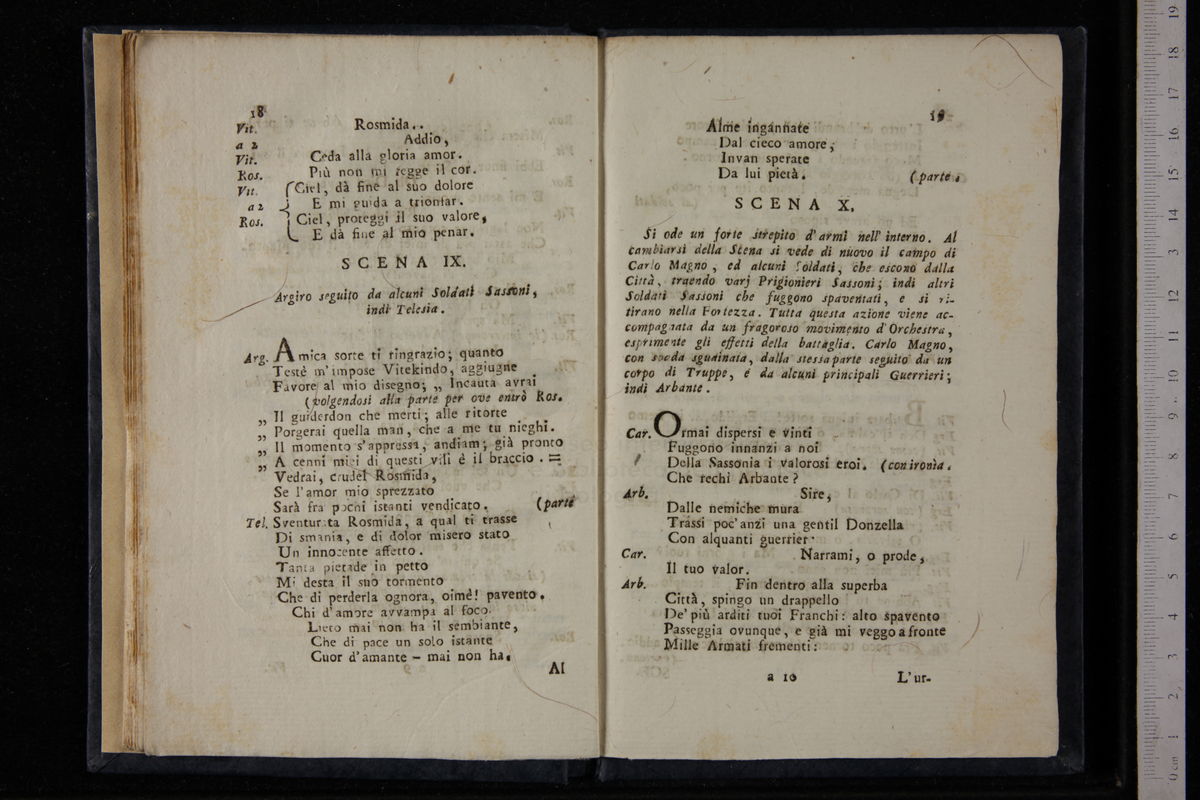 18
Vit. Rosmida..
a 2 Addio,
Vit. Ceda alla gloria amor.
Ros. Più non mi regge il cor.
Vit. Ciel, dà fine al suo dolore
a 2 E mi guida a trionfar.
Ros. Ciel, proteggi il suo valore,
E dà fine al mio penar.
SCENA IX.
Argiro seguito da alcuni Soldati Sassoni,
indi Telesia.
Arg. Amica sorte ti ringrazio; quanto
Testè m'impose Vitekindo, aggiugne
Favore al mio disegno; „ Incauta avrai
(volgendosi alla parte per ove entrò Ros.
„ Il guiderdon che merti; alle ritorte
„ Porgerai quella man, che a me tu nieghi.
„ Il momento s'appressa, andiam; già pronto
„ A cenni miei di questi vili è il braccio. =
Vedrai, crudel Rosmida,
Se l'amor mio sprezzato
Sarà fra pochi istanti vendicato. (parte
Tel. Sventurata Rosmida, a qual ti trasse
Di smania, e di dolor misero stato
Un innocente affetto.
Tanta pietade in petto
Mi desta il suo tormento
Che di perderla ognora, oimè! pavento.
Chi d'amore avvampa al foco
Lieto mai non ha il sembiante,
Che di pace un solo istante
Cuor d'amante - mai non ha.
Al
19
Alme ingannate
Dal cieco amore,
Invan sperate
Da lui pietà. (parte.
SCENA X.
Si ode un forte strepito d'armi nell'interno. Al
cambiarsi della Scena si vede di nuovo il campo di
Carlo Magno, ed alcuni Soldati, che escono dalla
Città, traendo varj Prigionieri Sassoni; indi altri
Soldati Sassoni che fuggono spaventati, e si ri-
tirano nella Fortezza. Tutta questa azione viene ac-
compagnata da un fragoroso movimento d'Orchestra,
esprimente gli effetti della battaglia. Carlo Magno,
con spada sguainata, dalla stessa parte seguito da un
corpo di Truppe, e da alcuni principali Guerrieri;
indi Arbante.
Car. Ormai dispersi e vinti
Fuggono innanzi a noi
Della Sassonia i valorosi eroi. (con ironìa.
Che rechi Arbante?
Arb. Sire,
Dalle nemiche mura
Trassi poc'anzi una gentil Donzella
Con alquanti guerrier.
Car. Narrami, o prode,
Il tuo valor.
Arb. Fin dentro alla superba
Città, spingo un drappello
De' più arditi tuoi Franchi: alto spavento
Passeggia ovunque, e già mi veggo a fronte
Mille Armati frementi:
a 10 L'ur-